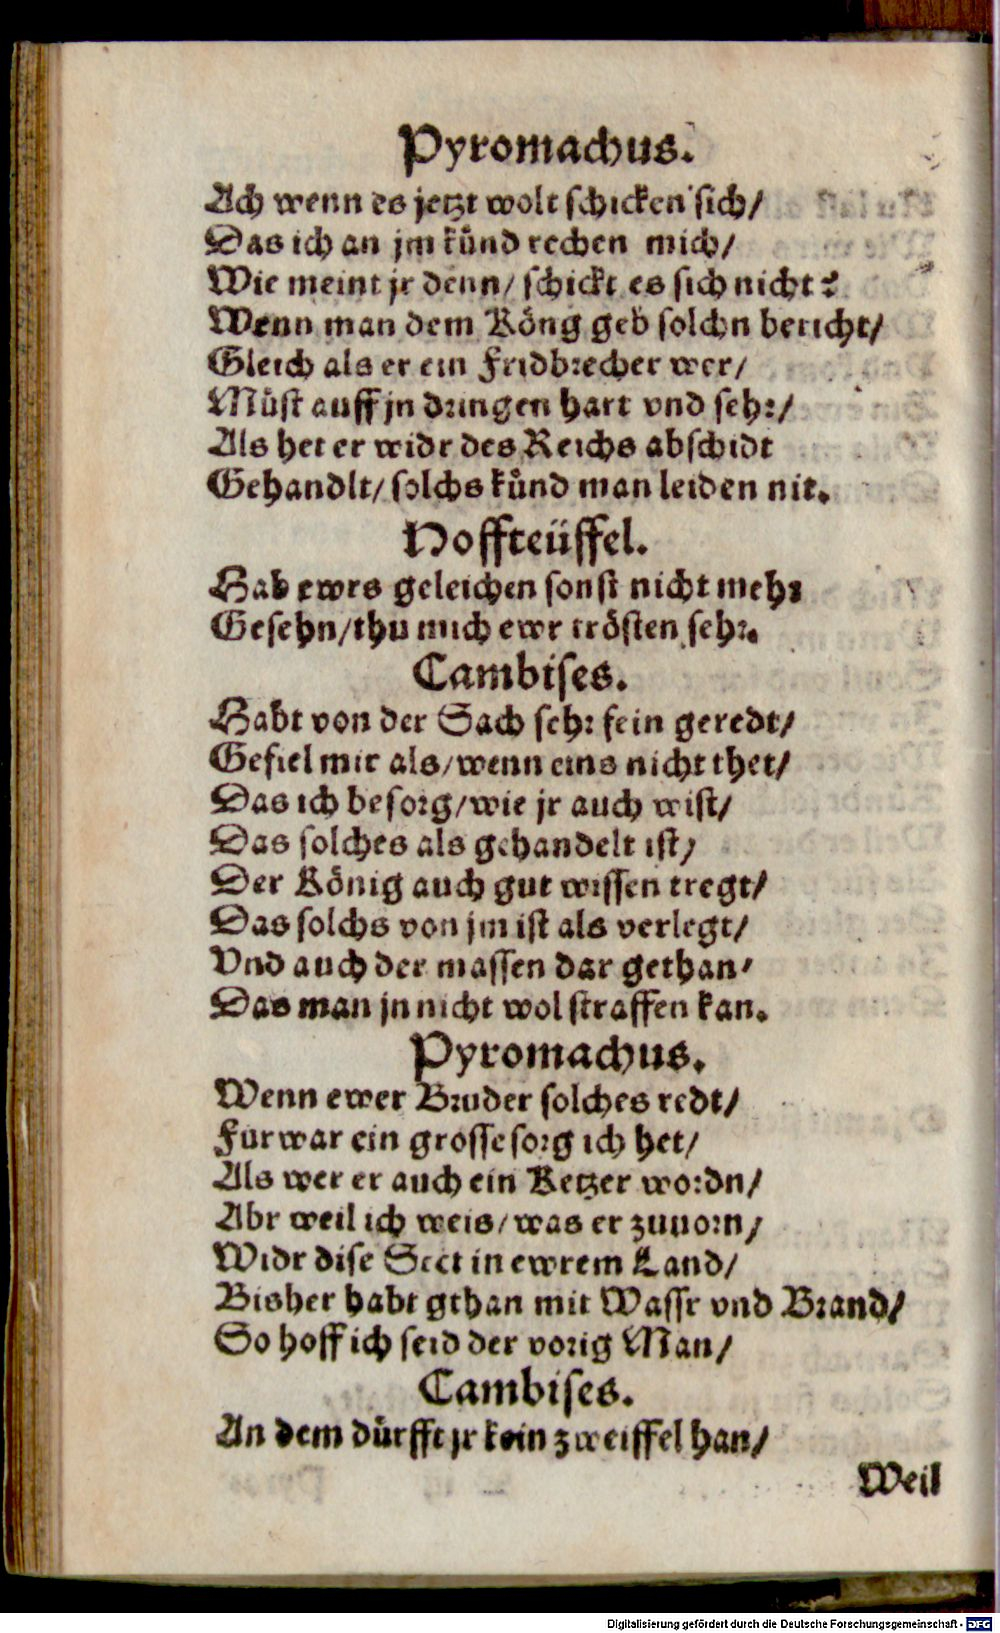 Pyromachus.
Ach wenn es jetzt wolt schicken sich/
Das ich an jm künd rechen mich/
Wie meint jr denn/ schickt es sich nicht?
Wenn man dem Köng geb solchn bericht/
Gleich als er ein Fridbrecher wer/
Müst auff jn dringen hart vnd sehr/
Als het er widr des Reichs abschidt
Gehandlt/ solchs künd man leiden nit.
Hoffteüffel.
Hab ewrs geleichen sonst nicht mehr
Gesehn/thu mich ewr trösten sehr.
Cambises.
Habt von der Sach sehr fein geredt/
Gefiel mir als/wenn eins nicht thet/
Das ich besorg/wie jr auch wist/
Das solches als gehandelt ist/
Der König auch gut wissen tregt/
Das solchs von jm ist als verlegt/
Vnd auch der massen dar gethan/
Das man jn nicht wol straffen kan.
Pyromachus.
Wenn ewer Bruder solches redt/
Furwar ein grosse sorg ich het/
Als wer er auch ein Ketzer wordn/
Abr weil ich weis/was er zuuorn/
Widr dise Sect in ewrem Land/
Bisher habt gthan mit Wassr vnd Brand/
So hoff ich seid der vorig Man/
Cambises.
An dem dürfft jr kein zweiffel han/
Weil
Digitalisierung gefördert durch die Deutsche Forschungsgemeinschaft - DFG